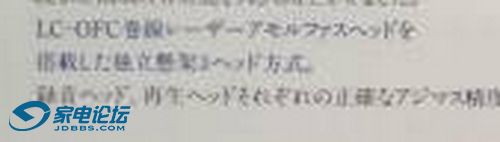 LC-OFC巻線レーザーアモルファスヘッドを
搭載した独立懸架3ヘッド方式。
録音ヘッド、再生ヘッドそれぞれの正確なアジマス精度
家电论坛
JDBBS.COM